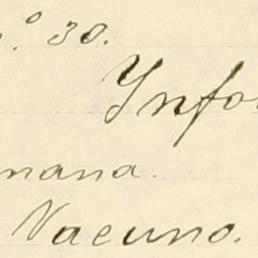 º 30.
Ynfor
mana.
Vacuno.